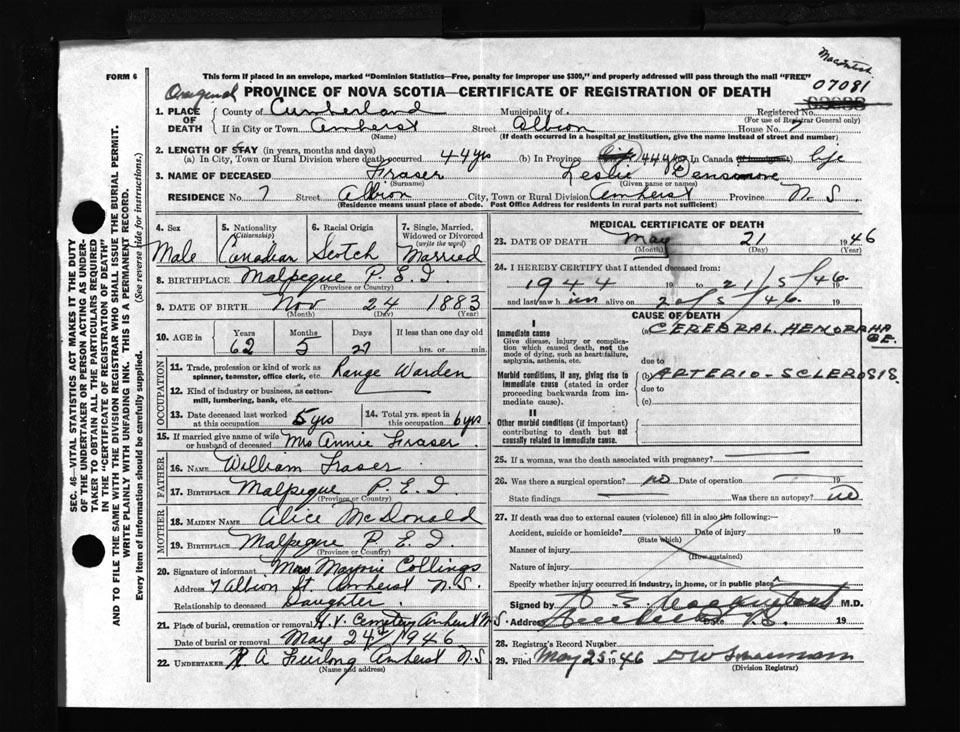 MacIntosh
FORM 6
This form if placed in an envelope, marked "Dominion Statistics—Free, penalty for improper use $300," and properly addressed will pass through the mail "FREE"
07081
Original PROVINCE OF NOVA SCOTIA—CERTIFICATE OF REGISTRATION OF DEATH
1. PLACE OF DEATH County of Cumberland Municipality of Registered No.
(For use of Registrar General only)
If in City or Town Amherst Street Albion House No. 7
(Name) (If death occurred in a hospital or institution, give the name instead of street and number)
2. LENGTH OF STAY (in years, months and days)
(a) In City, Town or Rural Division where death occurred 44 yrs (b) In Province life 44 yrs In Canada (if immigrant) life
3. NAME OF DECEASED Fraser Leslie Densmore
(Surname) (Given name or names)
RESIDENCE No. 7 Street Albion City, Town or Rural Division Amherst Province N.S.
(Residence means usual place of abode. Post Office Address for residents in rural parts not sufficient)
SEC. 46—VITAL STATISTICS ACT MAKES IT THE DUTY
OF THE UNDERTAKER OR PERSON ACTING AS UNDER-
TAKER TO OBTAIN ALL THE PARTICULARS REQUIRED
IN THE "CERTIFICATE OF REGISTRATION OF DEATH"
AND TO FILE THE SAME WITH THE DIVISION REGISTRAR WHO SHALL ISSUE THE BURIAL PERMIT.
WRITE PLAINLY WITH UNFADING INK. THIS IS A PERMANENT RECORD.
Every item of information should be carefully supplied. (See reverse side for instructions.)
4. Sex 5. Nationality (Citizenship) 6. Racial Origin 7. Single, Married, Widowed or Divorced (write the word)
Male Canadian Scotch Married
8. BIRTHPLACE Malpeque P.E.I.
(Province or Country)
9. DATE OF BIRTH Nov 24 1883
(Month) (Day) (Year)
10. AGE in Years Months Days If less than one day old
62 5 27 hrs. or min.
OCCUPATION
11. Trade, profession or kind of work as spinner, teamster, office clerk, etc. Range Warden
12. Kind of industry or business, as cotton-mill, lumbering, bank, etc.
13. Date deceased last worked at this occupation 5 yrs 14. Total yrs. spent in this occupation 6 yrs
15. If married give name of wife or husband of deceased Mrs Annie Fraser
FATHER
16. NAME William Fraser
17. BIRTHPLACE Malpeque P.E.I.
(Province or Country)
MOTHER
18. MAIDEN NAME Alice McDonald
19. BIRTHPLACE Malpeque P.E.I
(Province or Country)
20. Signature of informant Mrs Marjorie Collings
Address 7 Albion St. Amherst N.S.
Relationship to deceased Daughter
21. Place of burial, cremation or removal H.V. Cemetery Amherst N.S
Date of burial or removal May 24 1946
22. UNDERTAKER R A Furlong Amherst N.S.
(Name and address)
MEDICAL CERTIFICATE OF DEATH
23. DATE OF DEATH May 21 1946
(Month) (Day) (Year)
24. I HEREBY CERTIFY that I attended deceased from:
1944 19 to 21/5/46 19
and last saw him alive on 20/5/46. 19
CAUSE OF DEATH
I
Immediate cause (a) CEREBRAL HEMORRHAGE.
Give disease, injury or complication which caused death, not the mode of dying, such as heart failure, asphyxia, asthenia, etc. due to
Morbid conditions, if any, giving rise to immediate cause (stated in order proceeding backwards from immediate cause). (b) ARTERIO-SCLEROSIS.
due to
(c)
II
Other morbid conditions (if important) contributing to death but not causally related to immediate cause.
25. If a woman, was the death associated with pregnancy?
26. Was there a surgical operation? no Date of operation 19
State findings Was there an autopsy? no
27. If death was due to external causes (violence) fill in also the following:—
Accident, suicide or homicide? Date of injury 19
(State which)
Manner of injury
(How sustained)
Nature of injury
Specify whether injury occurred in industry, in home, or in public place
Signed by M.D.
Address Date 19
28. Registrar's Record Number
29. Filed May 25 1946
(Division Registrar)